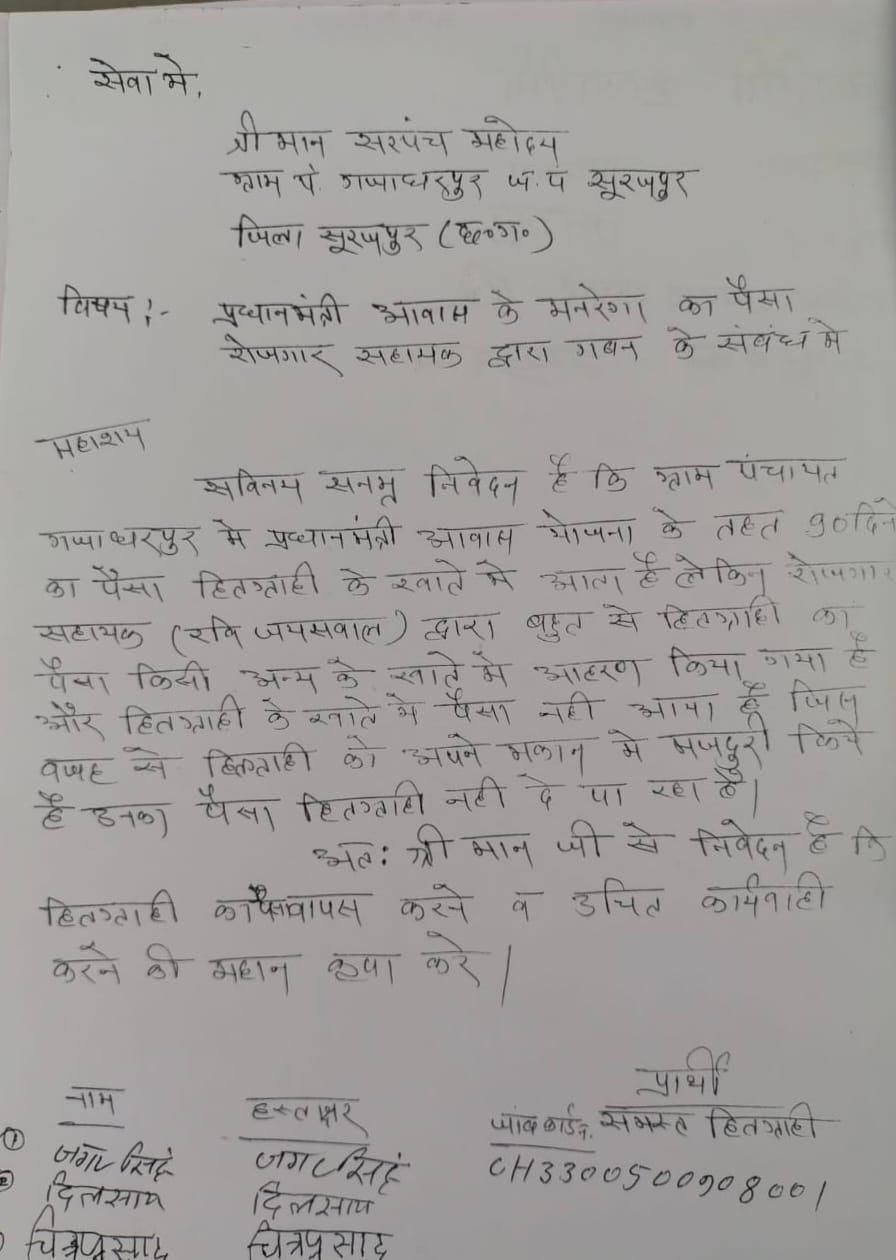 सेवा मे,
श्री मान सरपंच महोदय
ग्राम पं. गजाधरपुर ज.पं सूरजपुर
जिला सूरजपुर (छ०ग०)
विषय :- प्रधानमंत्री आवास के मनरेगा का पैसा
रोजगार सहायक द्वारा गबन के संबंध मे
महाशय
सविनय सनम्र निवेदन है कि ग्राम पंचायत
गजाधरपुर मे प्रधानमंत्री आवास योजना के तहत 90 दिन
का पैसा हितग्राही के खाते मे आता है लेकिन रोजगार
सहायक (रवि जयसवाल) द्वारा बहुत से हितग्राही का
पैसा किसी अन्य के खाते मे आहरण किया गया है
और हितग्राही के खाते मे पैसा नही आया है जिस
वजह से हितग्राही को अपने मकान मे मजदुरी किये
है उनका पैसा हितग्राही नही दे पा रहा है।
अतः श्री मान जी से निवेदन है कि
हितग्राही का पैसा वापस करने व उचित कार्यवाही
करने की महान कृपा करे।
प्रार्थी
नाम हस्ताक्षर जांब कार्ड न. समस्त हितग्राही
① जगर सिहं जगर सिहं CH3300500908001
② दिलसाय दिलसाय
चित्रप्रसाद चित्रप्रसाद